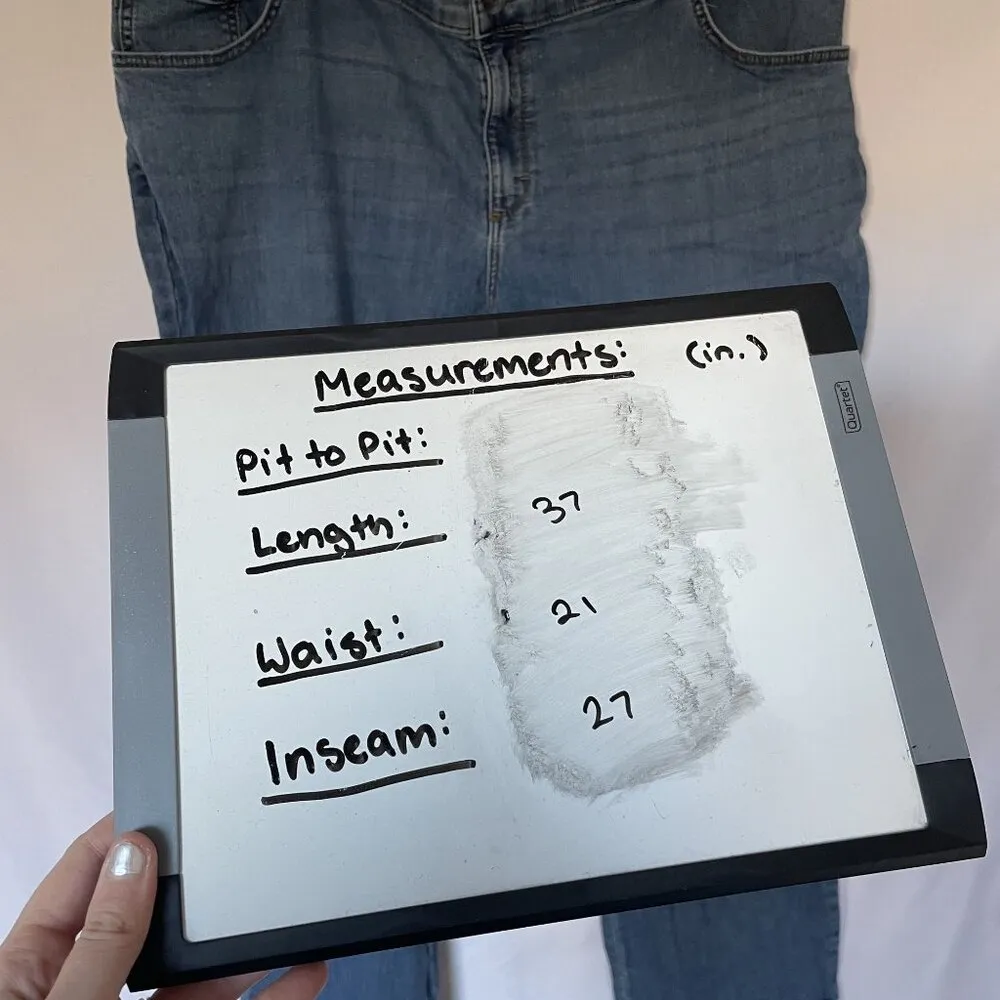 Measurements: (in.)
Pit to Pit:
Length: 37
Waist: 21
Inseam: 27
Quartet